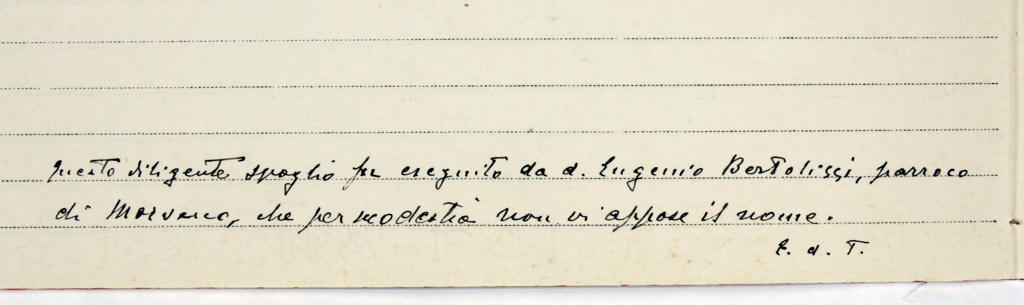 questo diligente spoglio fu eseguito da d. Eugenio Bertolissi, parroco
di che per modestia non vi appose il nome.
T.